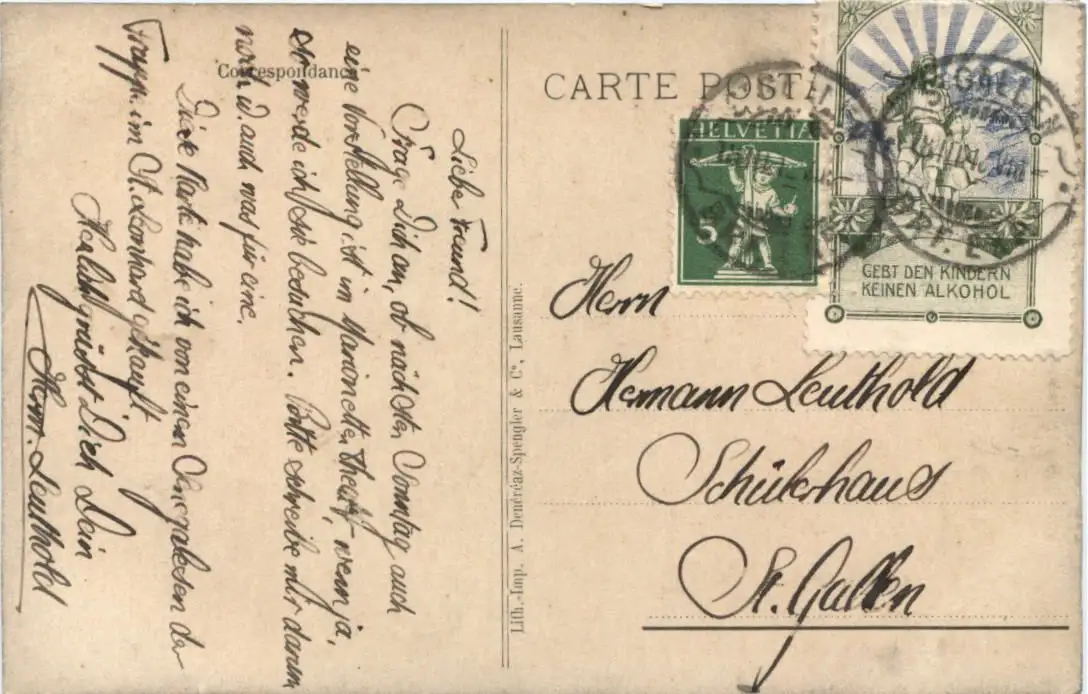 Correspondance
Liebe Freund!
Frage Dich an, ob nächsten Sonntag auch
eine Vorstellung ist in Marionettentheater wenn ja,
so werde ich sie besuchen. Bitte schreibe mir darum
noch auch was für eine.
Diese Karte habe ich von einen
im St. Leonhard gekauft.
grüsst Dich Dein
Herm. Leuthold
Lith.-Imp. A. Denéréaz-Spengler & Cº, Lausanne.
CARTE POSTA
HELVETIA
5
ST. GALLEN
BRF. EXP.
GEBT DEN KINDERN
KEINEN ALKOHOL
Herrn
Hermann Leuthold
Schülerhaus
St. Gallen